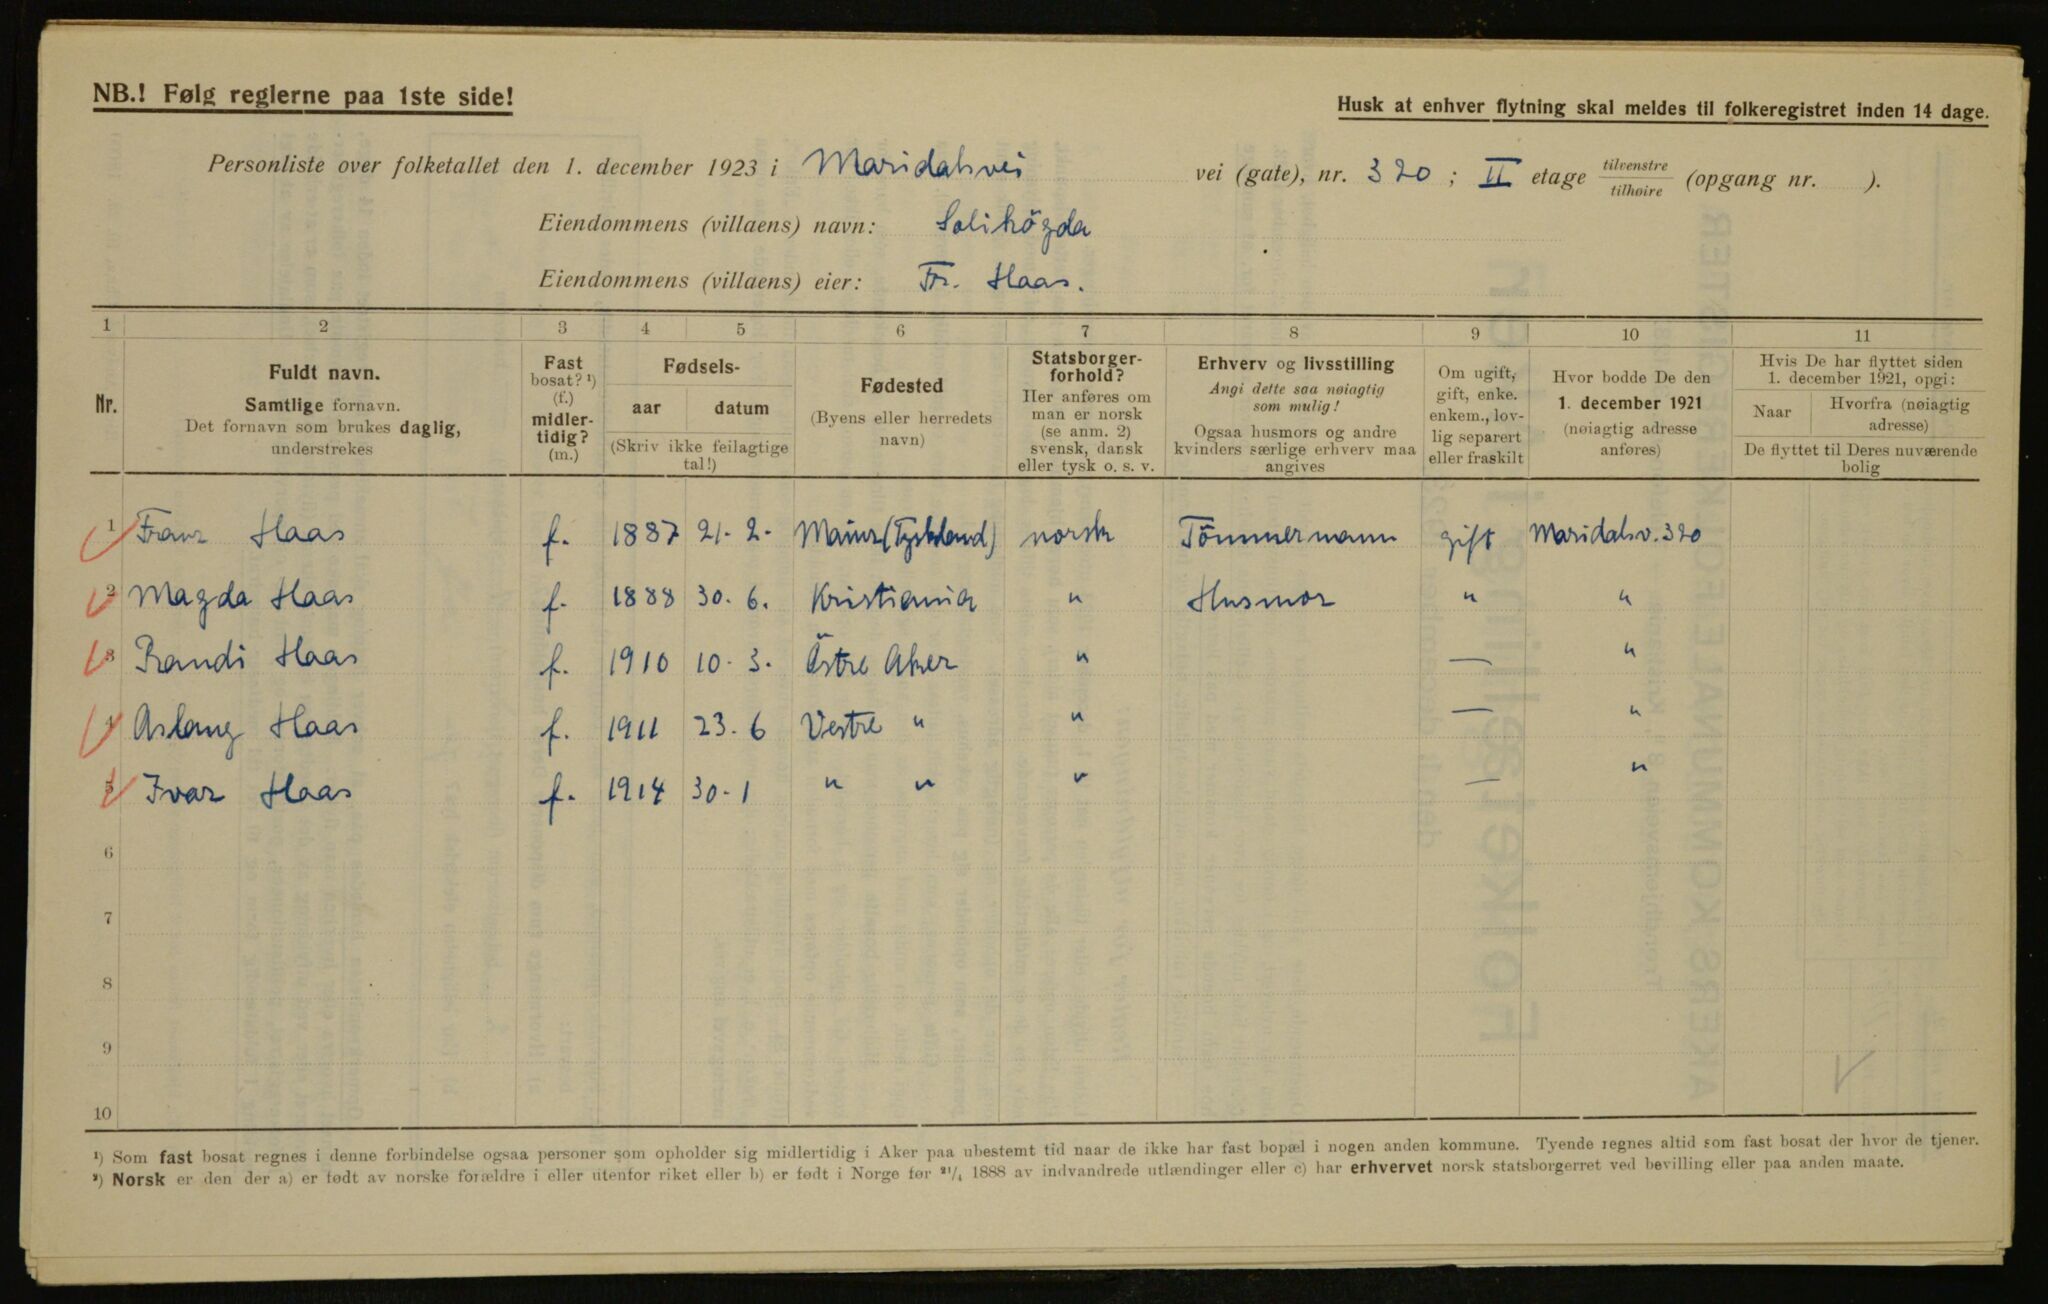 NB.! Følg reglerne paa 1ste side!
Husk at enhver flytning skal meldes til folkeregistret inden 14 dage.
Personliste over folketallet den 1. december 1923 i Maridalsvei vei (gate), nr. 320 ; II etage tilvenstre / tilhøire (opgang nr. ).
Eiendommens (villaens) navn: Solihögda
Eiendommens (villaens) eier: Fr. Haas.
1 2 3 4 5 6 7 8 9 10 11
Nr.
Fuldt navn.
Samtlige fornavn.
Det fornavn som brukes daglig,
understrekes
Fast
bosat? ¹)
(f.)
midler-
tidig?
(m.)
Fødsels-
aar datum
(Skriv ikke feilagtige
tal!)
Fødested
(Byens eller herredets
navn)
Statsborger-
forhold?
Her anføres om
man er norsk
(se anm. 2)
svensk, dansk
eller tysk o. s. v.
Erhverv og livsstilling
Angi dette saa nøiagtig
som mulig!
Ogsaa husmors og andre
kvinders særlige erhverv maa
angives
Om ugift,
gift, enke.
enkem., lov-
lig separert
eller fraskilt
Hvor bodde De den
1. december 1921
(nøiagtig adresse
anføres)
Hvis De har flyttet siden
1. december 1921, opgi:
Naar Hvorfra (nøiagtig
adresse)
De flyttet til Deres nuværende
bolig
1 Franz Haas f. 1887 21. 2. Mainz (Tyskland) norsk Tömmermann gift Maridalsv. 320
2 Magda Haas f. 1888 30. 6. Kristiania " Husmor " "
3 Randi Haas f. 1910 10. 3. Östre Aker " — "
4 Aslaug Haas f. 1911 23. 6 Vestre " " — "
5 Ivar Haas f. 1914 30. 1 " " " — "
6
7
8
9
10
¹) Som fast bosat regnes i denne forbindelse ogsaa personer som opholder sig midlertidig i Aker paa ubestemt tid naar de ikke har fast bopæl i nogen anden kommune. Tyende regnes altid som fast bosat der hvor de tjener.
²) Norsk er den der a) er født av norske forældre i eller utenfor riket eller b) er født i Norge før ²¹/₄ 1888 av indvandrede utlændinger eller c) har erhvervet norsk statsborgerret ved bevilling eller paa anden maate.